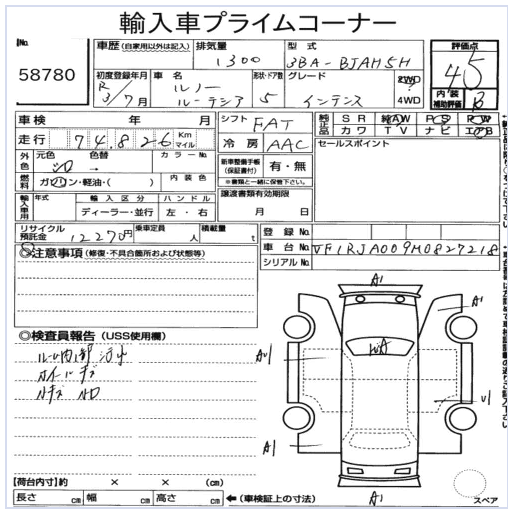 輸入車プライムコーナー
No.
58780
車歴 (自家用以外は記入)
排気量
1300
型式
3BA-BJAH5H
評価点
4.5
内装
補助評価
B
初度登録年月
R3/7月
車名
ルノー
ルーテシア
形状・ドア数
5
グレード
インテンス
2WD
4WD
車検 年 月
シフト
FAT
純正品
SR AW PS PW
カワ TV ナビ エアB
走行 74,826 Km マイル
冷房
AAC
セールスポイント
外色
元色 色替
シロ
カラーNo.
新車整備手帳
(保証書付)
有・無
※書類と一緒に保管下さい。
燃料
ガソリン・軽油・( )
内装色
譲渡書類有効期限
月 日
輸入車用
年式
輸入区分
ディーラー・並行
ハンドル
左・右
リサイクル
預託金
12270円
乗車定員
人
積載量
t
登録No.
車台No.
VF1RJA009M0827218
シリアルNo.
◎注意事項 (修復・不具合箇所および状態等)
◎検査員報告 (USS使用欄)
A1
A1
WA
A1
A1
【荷台内寸】約 × × (cm)
長さ cm 幅 cm 高さ cm
←(車検証上の寸法)
スペア